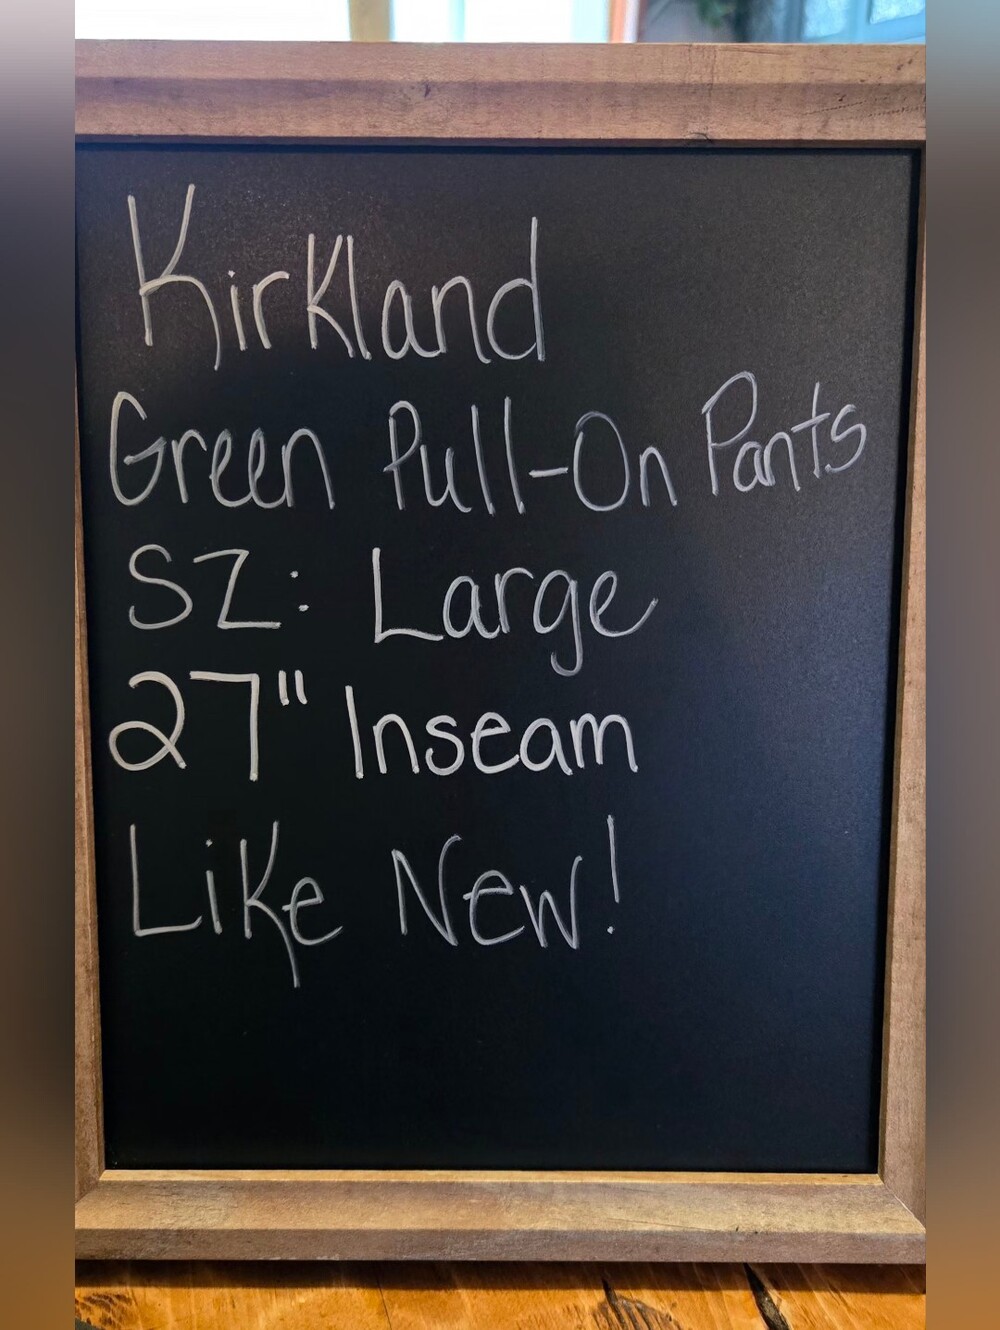 Kirkland
Green Pull-On Pants
SZ: Large
27" Inseam
Like New!